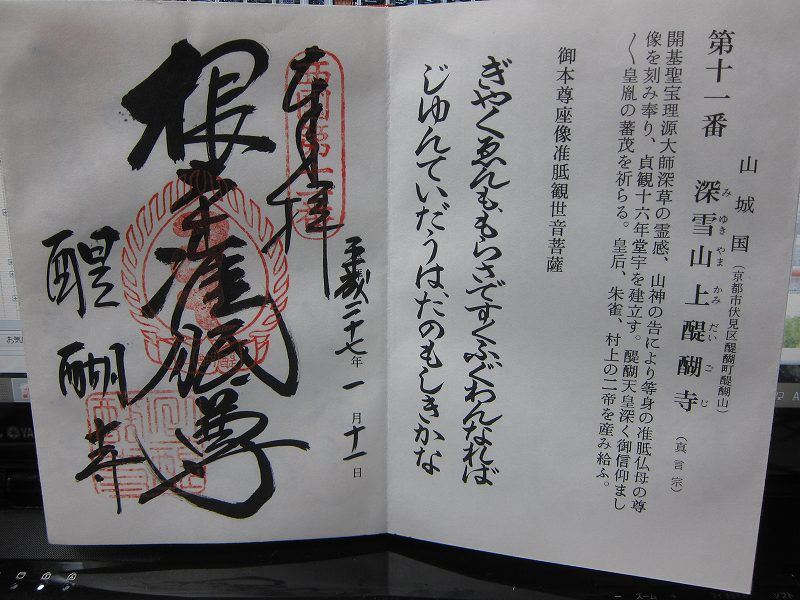 第十一番
山城国(京都市伏見区醍醐町醍醐山)
深雪山上醍醐寺(真言宗)
みゆきやまかみだいごじ
開基聖宝理源大師深草の霊感、山神の告により等身の准胝仏母の尊
像を刻み奉り、貞観十六年堂宇を建立す。醍醐天皇深く御信仰まし
〱皇胤の蕃茂を祈らる。皇后、朱雀、村上の二帝を産み給ふ。
御本尊座像准胝観世音菩薩
ぎやくゑんも、もらさですくふぐわんなれば
じゆんていだうはたのもしきかな
奉拝
西国第十一番
平成二十七年一月十一日
根本准胝尊
醍醐寺